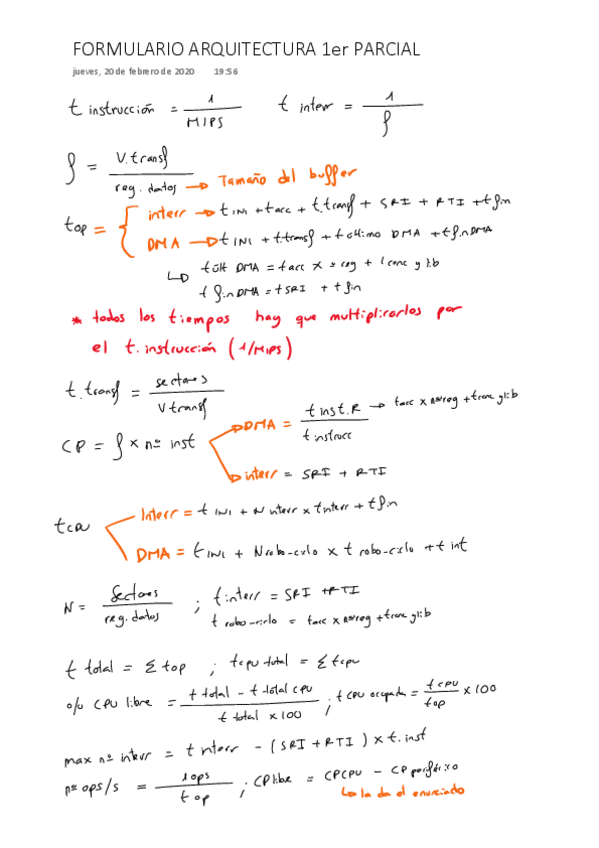 FORMULARIO ARQUITECTURA 1er PARCIAL
jueves, 20 de febrero de 2020 19:56
t instrucción = 1 / MIPS t interr = 1 / f
f = V.transf / reg. datos → Tamaño del buffer
top = { interr → t INI + tacc + t.transf + SRI + RTI + tfin
DMA → t INI + t.transf + t último DMA + tfinDMA
↳ túlt DMA = tacc x nºreg + tconc y lib
t finDMA = tSRI + tfin
* todos los tiempos hay que multiplicarlos por
el t. instrucción (1/MIPS)
t.transf = sectores / Vtransf
CP = f x nº inst → DMA = t inst.R / t instrucc → tacc x nºreg + tconc y lib
→ interr = SRI + RTI
tcpu Interr = t INI + N interr x tinterr + tfin
DMA = t INI + N robo-ciclo x t robo-ciclo + t int
N = Sectores / reg. datos ; t interr = SRI + RTI
t robo-ciclo = tacc x nºreg + tconc y lib
t total = Σ top ; tcpu total = Σ tcpu
% CPU libre = t total - t total cpu / t total x 100 ; t CPU ocupada = t CPU / top x 100
max nº interr = t interr - (SRI + RTI) x t. inst
nº ops/s = 1ops / top ; CPlibre = CPCPU - CP periférico
↳ la da el enunciado